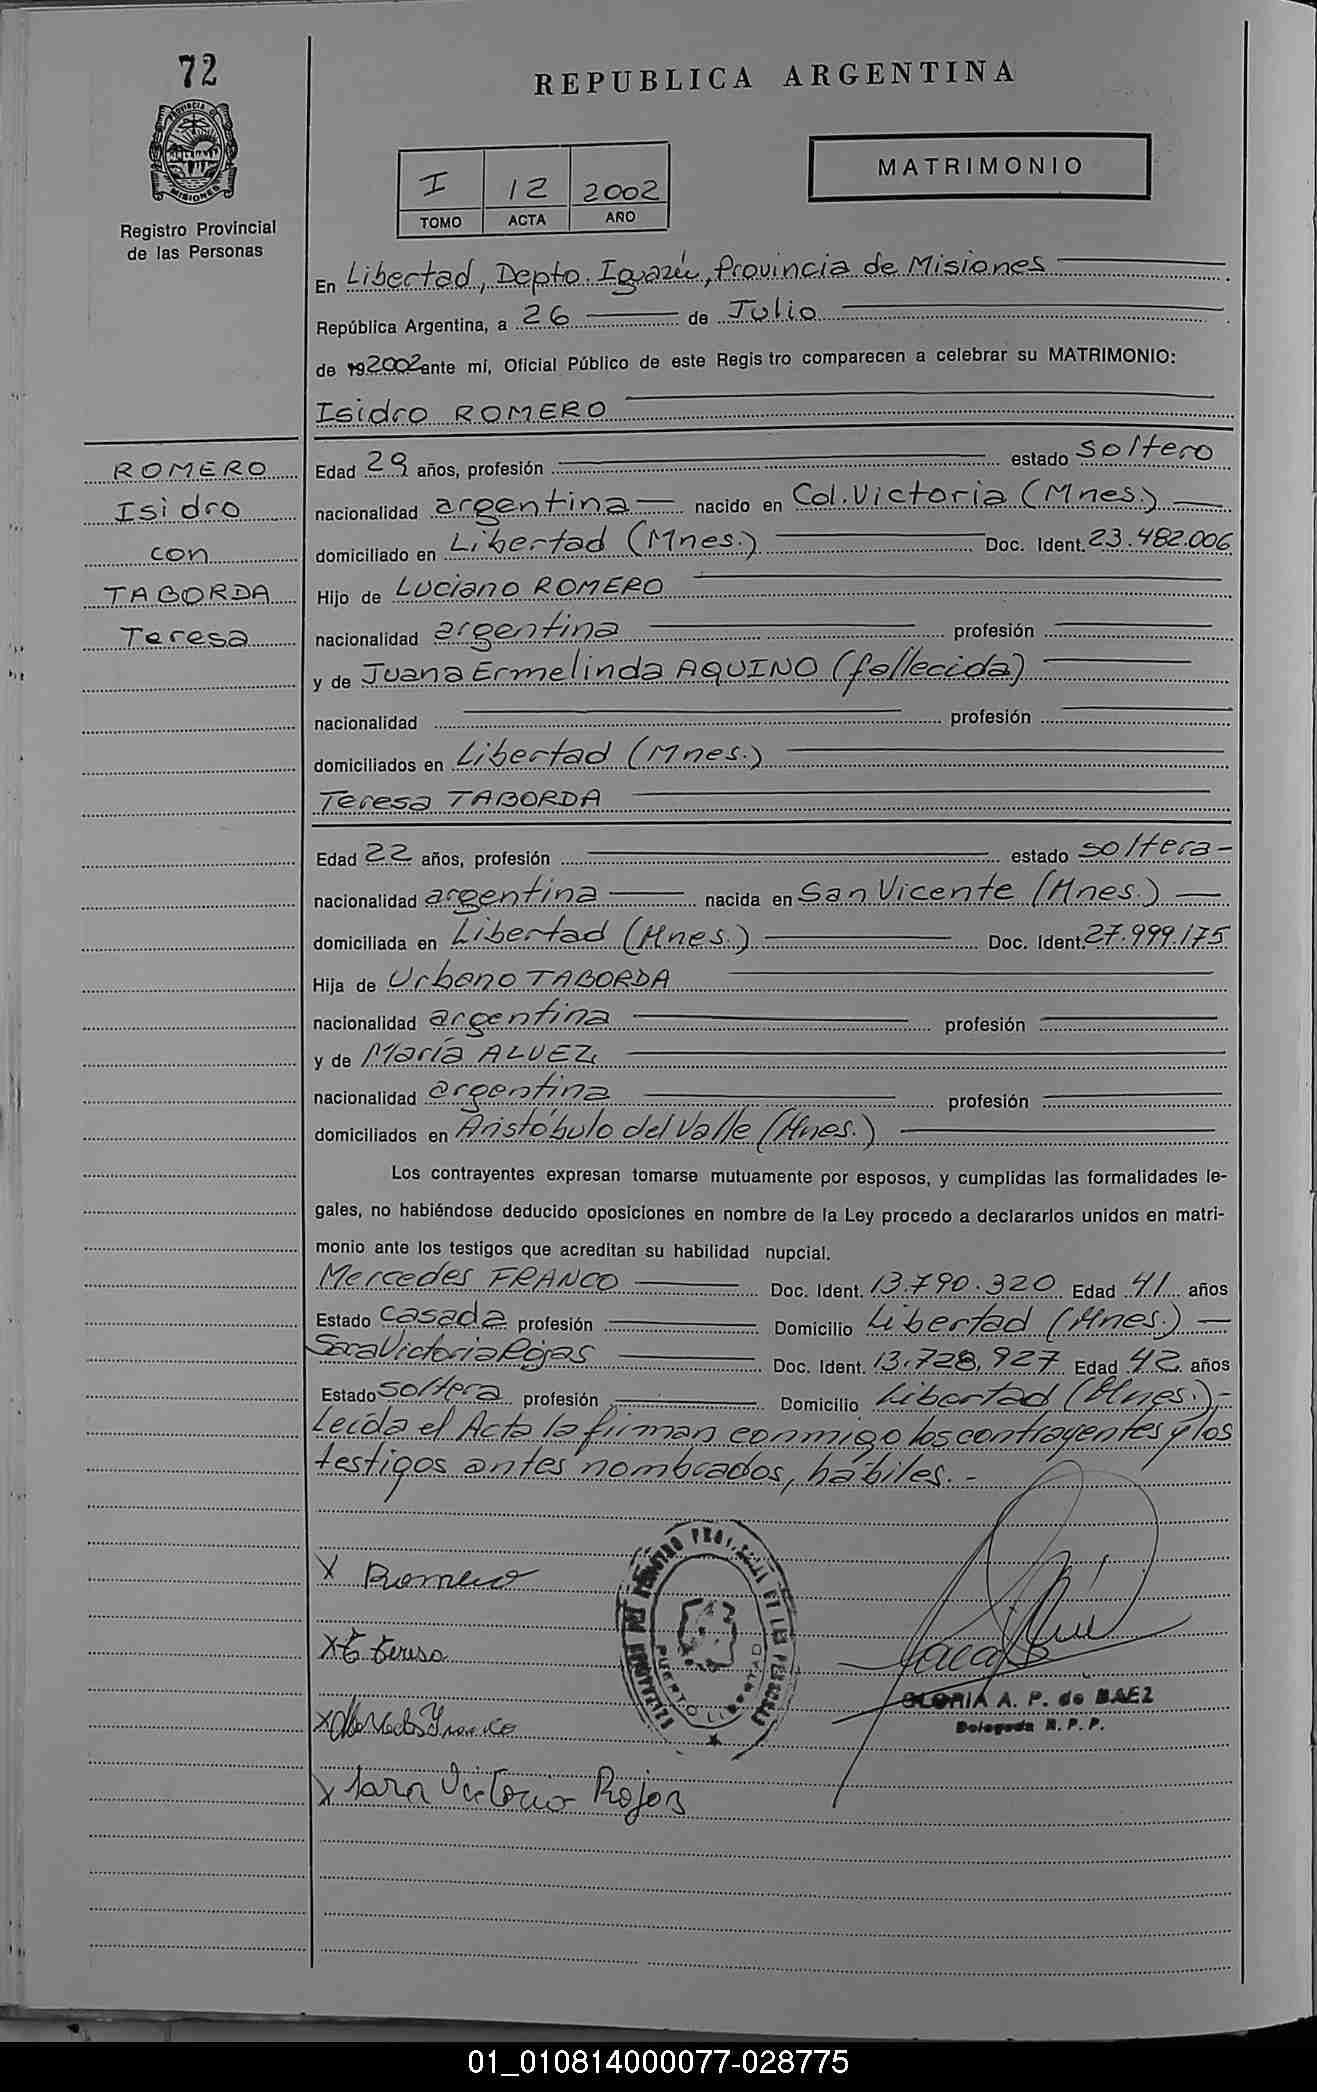 72
REPUBLICA ARGENTINA
PROVINCIA DE
MISIONES
MATRIMONIO
I 12 2002
TOMO ACTA AÑO
Registro Provincial
de las Personas
En Libertad, Depto. Iguazú, Provincia de Misiones
República Argentina, a 26 de Julio
de 192002 ante mí, Oficial Público de este Regis tro comparecen a celebrar su MATRIMONIO:
Isidro ROMERO
ROMERO
Isidro
con
TABORDA
Teresa
Edad 29 años, profesión estado soltero
nacionalidad argentina nacido en Col. Victoria (Mnes.)
domiciliado en Libertad (Mnes.) Doc. Ident. 23.482.006
Hijo de Luciano ROMERO
nacionalidad argentina profesión
y de Juana Ermelinda AQUINO (fallecida)
nacionalidad profesión
domiciliados en Libertad (Mnes.)
Teresa TABORDA
Edad 22 años, profesión estado soltera-
nacionalidad argentina nacida en San Vicente (Mnes.)
domiciliada en Libertad (Mnes.) Doc. Ident. 27.999.175
Hija de Urbano TABORDA
nacionalidad argentina profesión
y de María ALVEZ
nacionalidad argentina profesión
domiciliados en Aristóbulo del Valle (Mnes.)
Los contrayentes expresan tomarse mutuamente por esposos, y cumplidas las formalidades le-
gales, no habiéndose deducido oposiciones en nombre de la Ley procedo a declararlos unidos en matri-
monio ante los testigos que acreditan su habilidad nupcial.
Mercedes FRANCO Doc. Ident. 13.790.320 Edad 41 años
Estado casada profesión Domicilio Libertad (Mnes.)
Sara Victoria Rojas Doc. Ident. 13.728.927 Edad 42 años
Estado soltera profesión Domicilio Libertad (Mnes.)-
Leída el Acta la firman conmigo los contrayentes y los
testigos antes nombrados, hábiles.-
X Romero
X T. teresa
X Mercedes Franco
X Sara Victoria Rojas
PUERTO LIBERTAD
GLORIA A. P. de BAEZ
Delegada R. P. P.
01_010814000077-028775